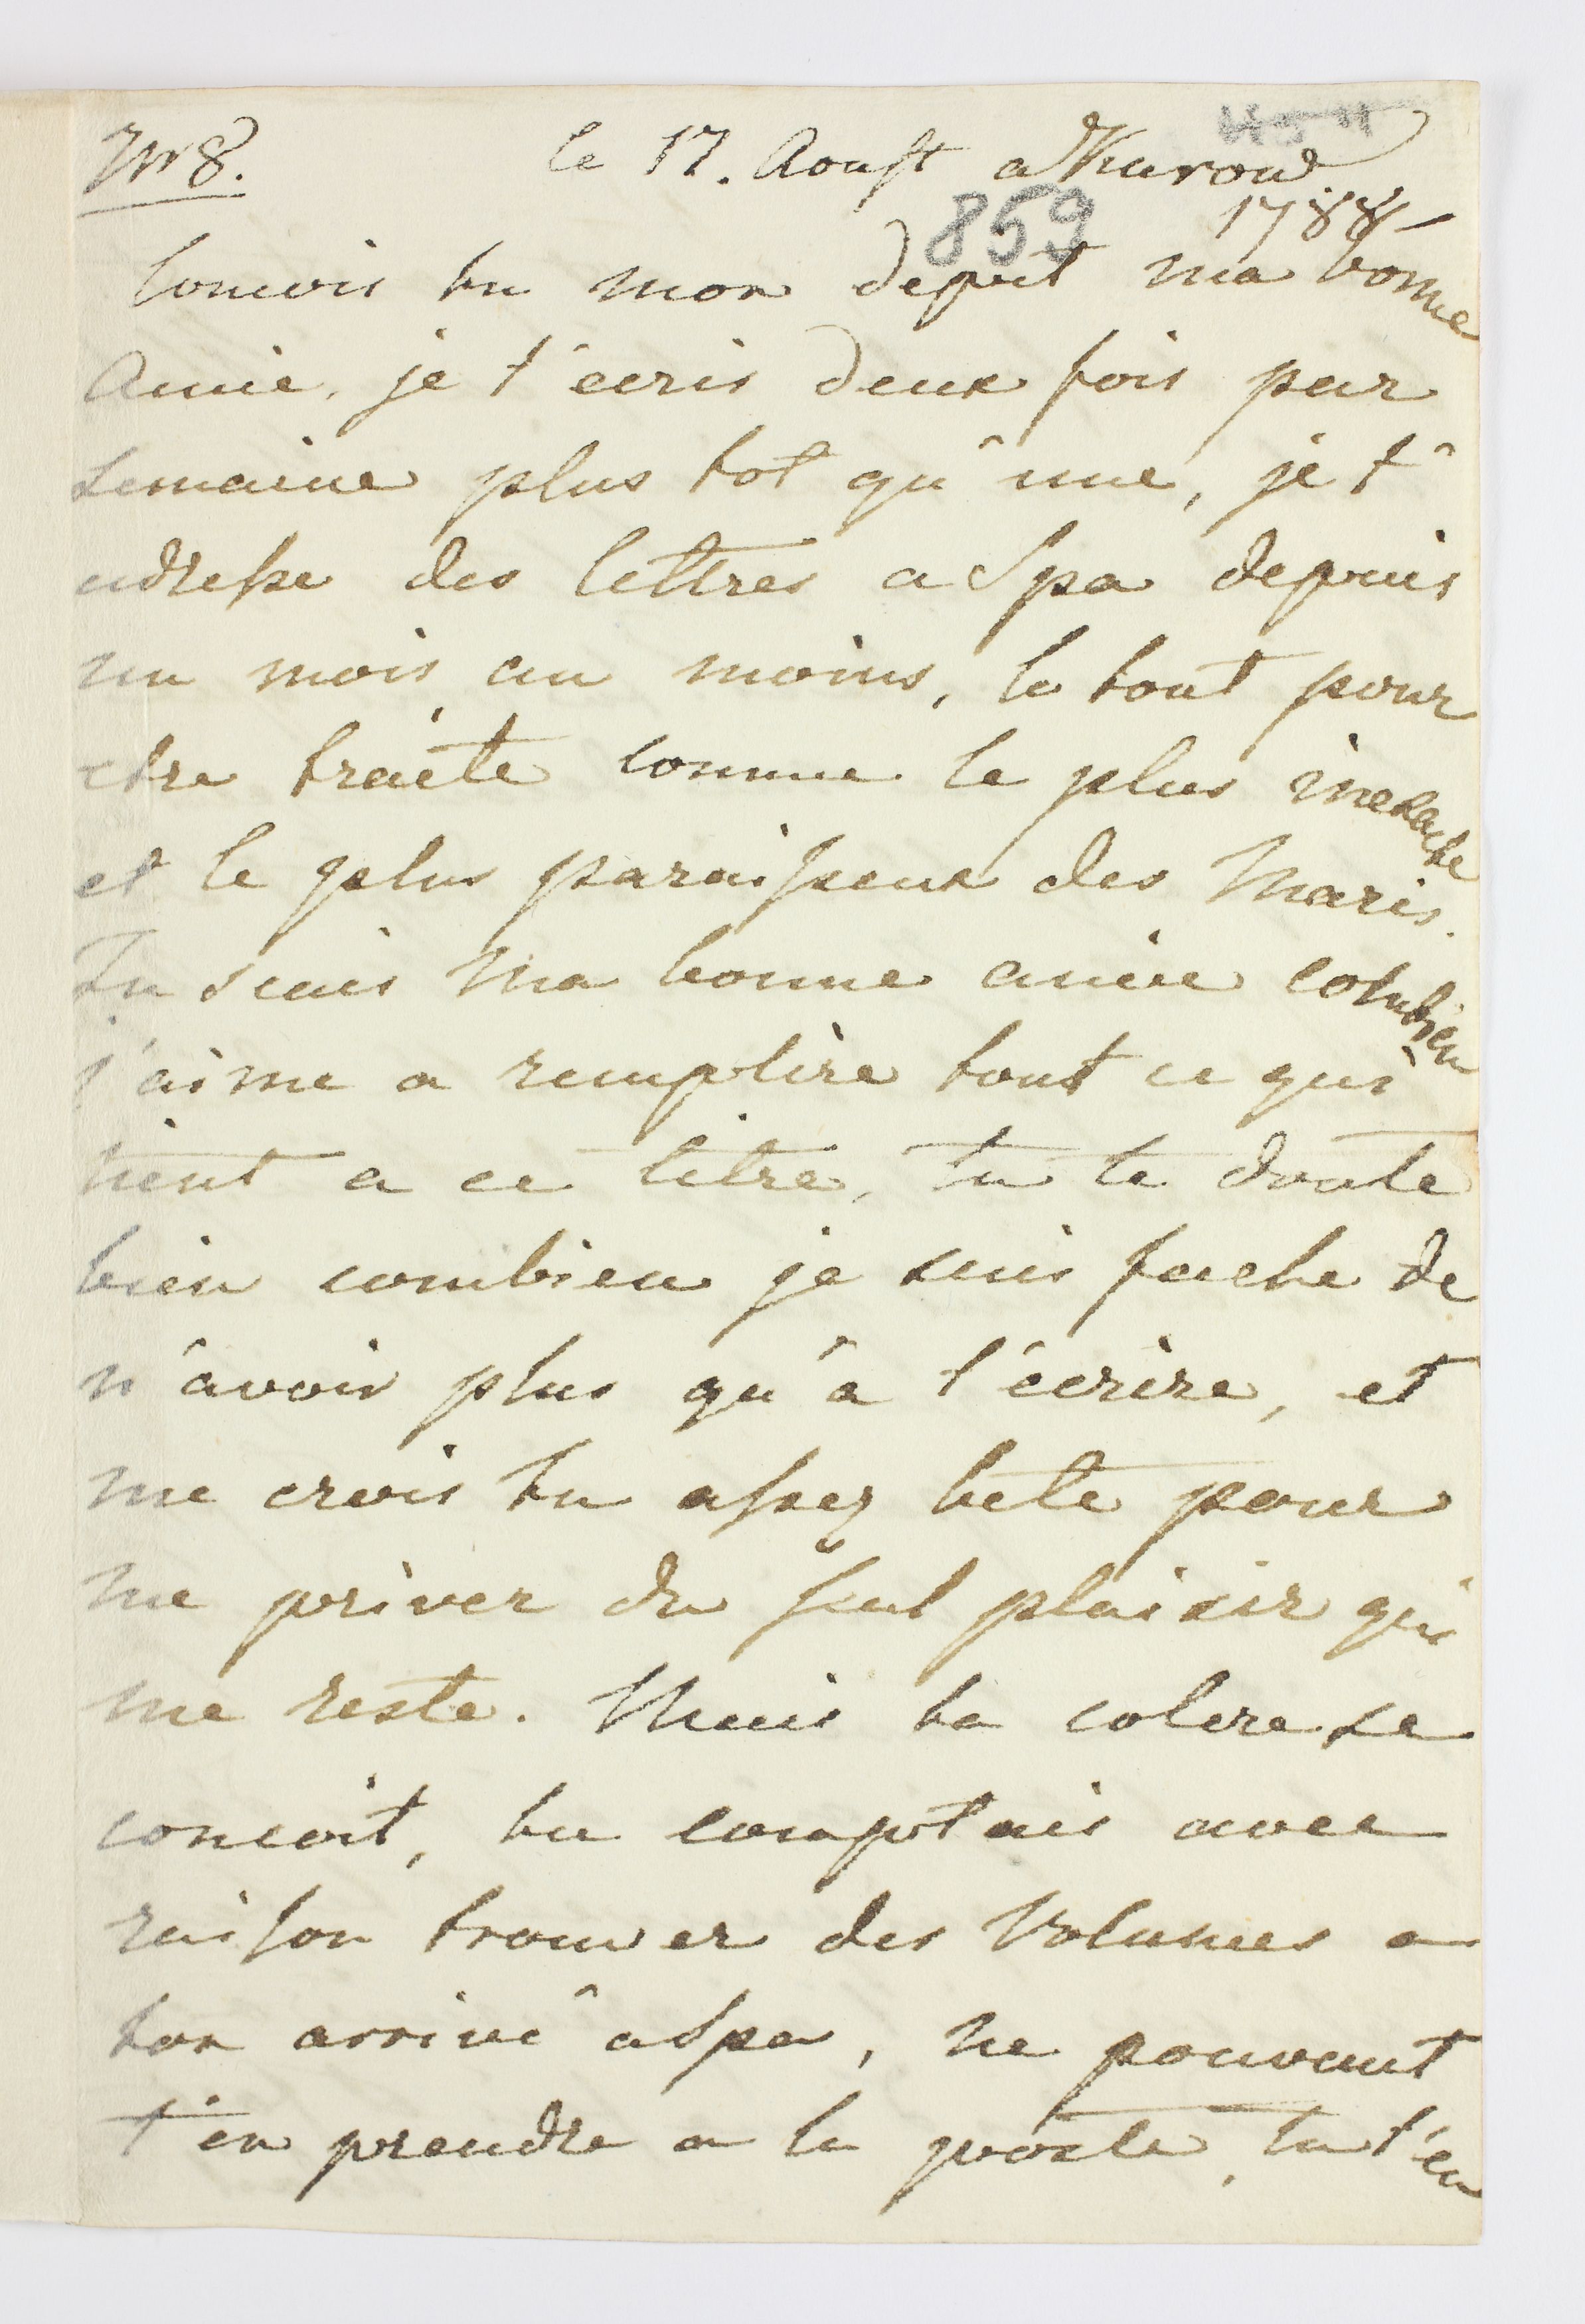 Nr 8. le 17. Aoust a Kurow
859 1788
Concois tu mon depit ma bonne
Amie, je t'ecris deux fois par
semaine plus tot qu'une, je t'
adresse des lettres a Spa depuis
un mois au moins, le tout pour
etre traite comme le plus inexacte
et le plus paraisseux des Maris.
Tu scais Ma bonne amie combien
j'aime a remplire tout ce qui
tient a ce titre, tu te doute
bien combien je suis fache de
n'avoir plus qu'a t'écrire, et
me crois tu assez bete pour
me priver du seul plaisir qui
me reste. Mais ta colere se
concoit, tu comptais avec
raison trouver des Volumes a
ton arrivé a Spa, ne pouvant
t'en prendre a la poste, tu t'en